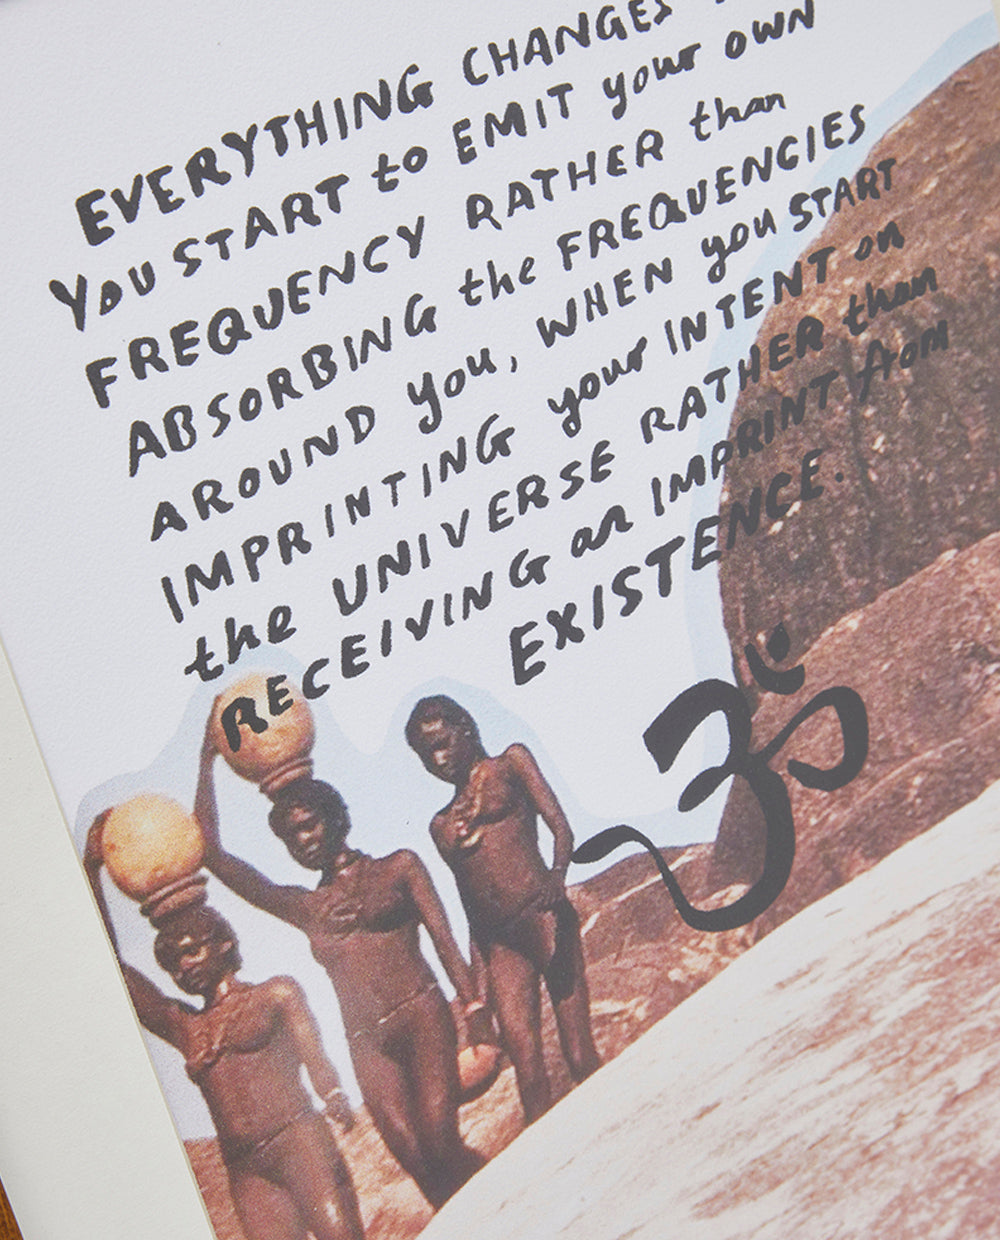 EVERYTHING CHANGES
YOU START to EMIT your OWN
FREQUENCY RATHER than
ABSORBING the FREQUENCIES
AROUND you, WHEN you START
IMPRINTING your INTENT on
the UNIVERSE RATHER than
RECEIVING an IMPRINT from
EXISTENCE.
ॐ